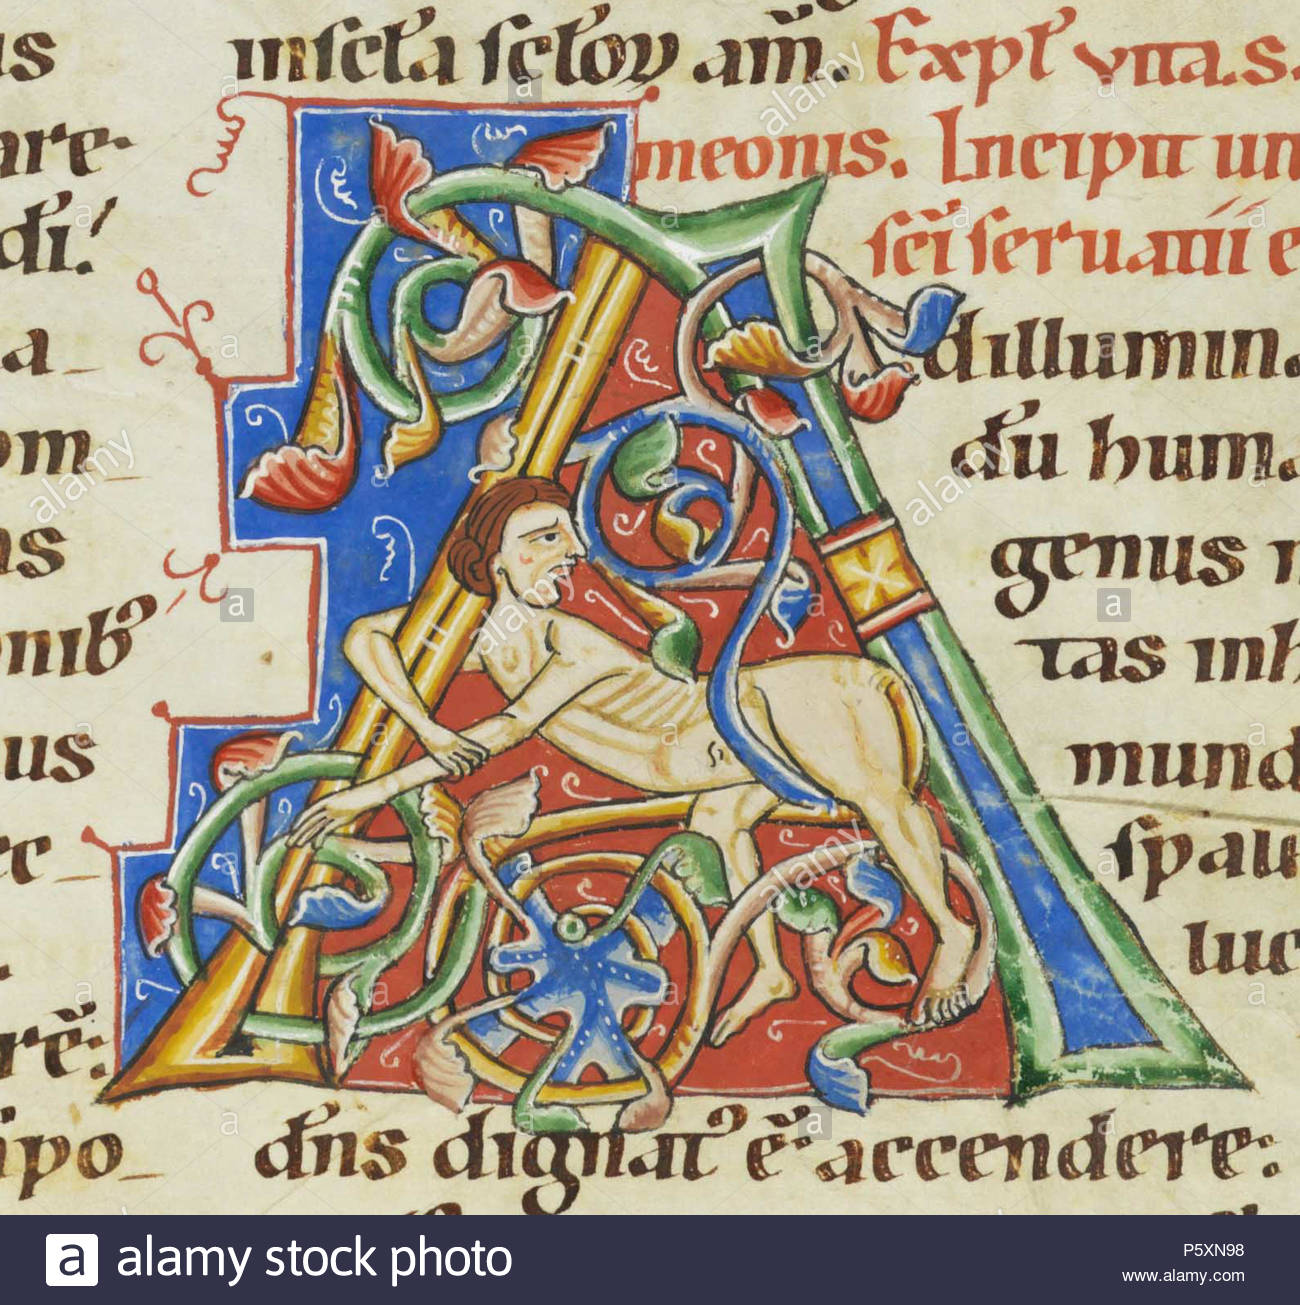 us
are·
di!
a
om
as
onib᷒
us
ec
rē:
ipo
in scl̄a scl̄oꝝ am̄. Expl̄ vita. s.
meonis. Incipit un
scī seruatii e
A
dillumin.
dū hum.
genus
tas inh
mund
spau
luc
dn̄s dignat᷒ ē accendere:
alamy
a
alamy stock photo
P5XN98
www.alamy.com